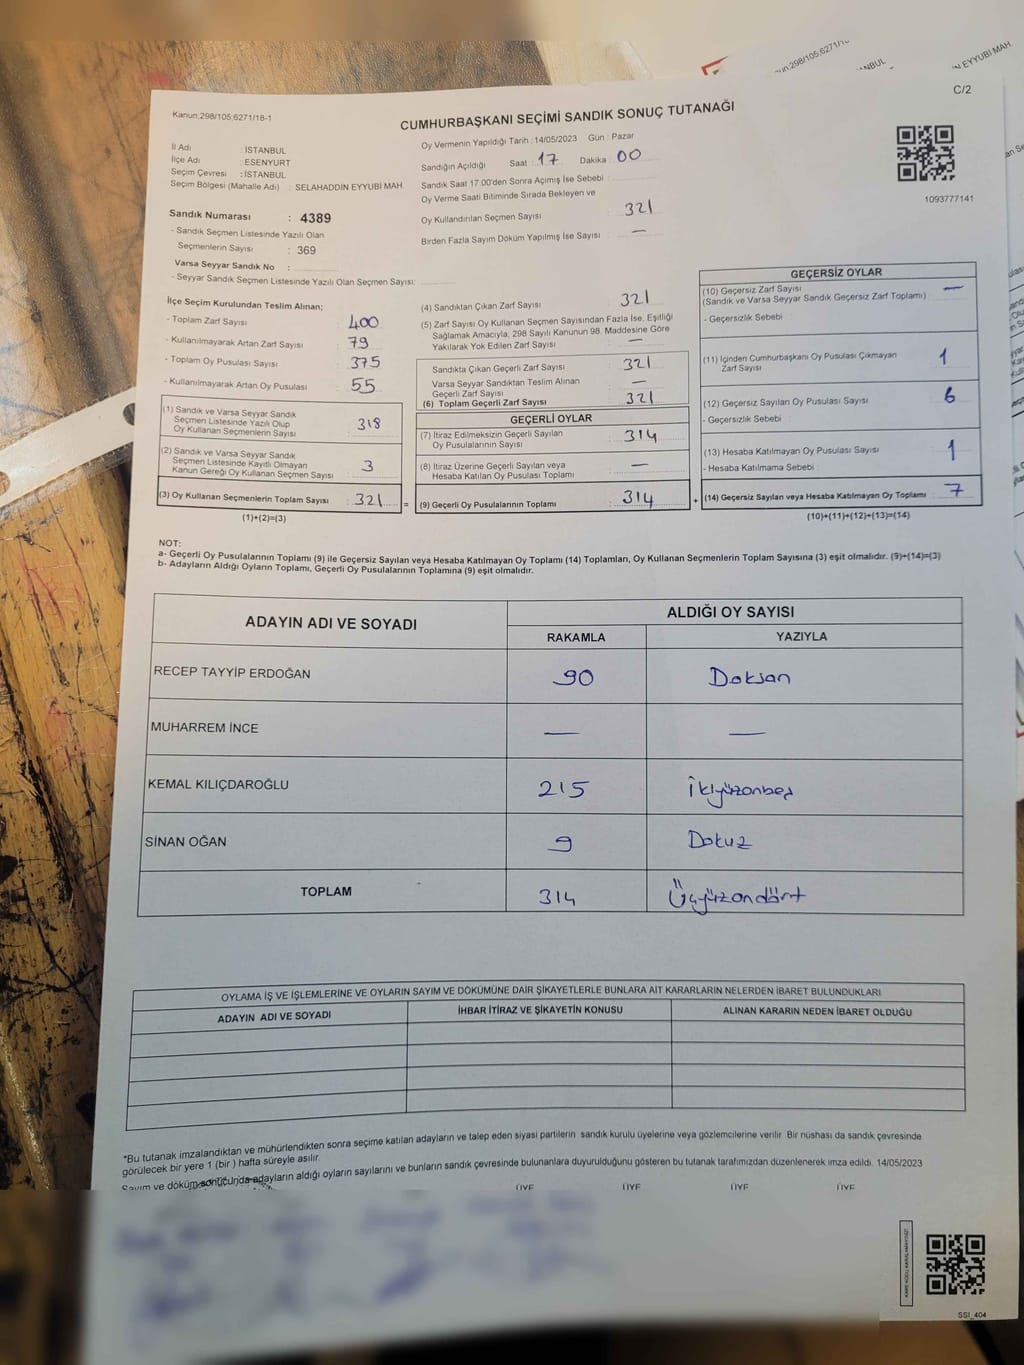 un.298/105;6271/1
ANBUL
N EYYUBİ MAH
C/2
Kanun;298/105;6271/18-1
CUMHURBAŞKANI SEÇİMİ SANDIK SONUÇ TUTANAĞI
Oy Vermenin Yapıldığı Tarih : 14/05/2023 Gün : Pazar
İl Adı : İSTANBUL
İlçe Adı : ESENYURT
Seçim Çevresi : İSTANBUL
Seçim Bölgesi (Mahalle Adı) : SELAHADDIN EYYUBİ MAH
Sandığın Açıldığı Saat : 17 Dakika : 00
Sandık Saat 17:00'den Sonra Açımış İse Sebebi :
Oy Verme Saati Bitiminde Sırada Bekleyen ve
Oy Kullandırılan Seçmen Sayısı : 321
Birden Fazla Sayım Döküm Yapılmış İse Sayısı : —
1093777141
Sandık Numarası : 4389
- Sandık Seçmen Listesinde Yazılı Olan
Seçmenlerin Sayısı : 369
Varsa Seyyar Sandık No :
- Seyyar Sandık Seçmen Listesinde Yazılı Olan Seçmen Sayısı:
İlçe Seçim Kurulundan Teslim Alınan;
- Toplam Zarf Sayısı : 400
- Kullanılmayarak Artan Zarf Sayısı : 79
- Toplam Oy Pusulası Sayısı : 375
- Kullanılmayarak Artan Oy Pusulası : 55
(1) Sandık ve Varsa Seyyar Sandık
Seçmen Listesinde Yazılı Olup
Oy Kullanan Seçmenlerin Sayısı : 318
(2) Sandık ve Varsa Seyyar Sandık
Seçmen Listesinde Kayıtlı Olmayan
Kanun Gereği Oy Kullanan Seçmen Sayısı : 3
(3) Oy Kullanan Seçmenlerin Toplam Sayısı : 321 =
(1)+(2)=(3)
(4) Sandıktan Çıkan Zarf Sayısı : 321
(5) Zarf Sayısı Oy Kullanan Seçmen Sayısından Fazla İse, Eşitliği
Sağlamak Amacıyla; 298 Sayılı Kanunun 98. Maddesine Göre
Yakılarak Yok Edilen Zarf Sayısı : —
Sandıkta Çıkan Geçerli Zarf Sayısı : 321
Varsa Seyyar Sandıktan Teslim Alınan
Geçerli Zarf Sayısı : —
(6) Toplam Geçerli Zarf Sayısı : 321
GEÇERLİ OYLAR
(7) İtiraz Edilmeksizin Geçerli Sayılan
Oy Pusulalarının Sayısı : 314
(8) İtiraz Üzerine Geçerli Sayılan veya
Hesaba Katılan Oy Pusulası Toplamı : —
(9) Geçerli Oy Pusulalarının Toplamı : 314 +
GEÇERSİZ OYLAR
(10) Geçersiz Zarf Sayısı : —
(Sandık ve Varsa Seyyar Sandık Geçersiz Zarf Toplamı)
- Geçersizlik Sebebi :
(11) İçinden Cumhurbaşkanı Oy Pusulası Çıkmayan
Zarf Sayısı : 1
(12) Geçersiz Sayılan Oy Pusulası Sayısı : 6
- Geçersizlik Sebebi :
(13) Hesaba Katılmayan Oy Pusulası Sayısı : 1
- Hesaba Katılmama Sebebi :
(14) Geçersiz Sayılan veya Hesaba Katılmayan Oy Toplamı : 7
(10)+(11)+(12)+(13)=(14)
NOT:
a- Geçerli Oy Pusulalarının Toplamı (9) ile Geçersiz Sayılan veya Hesaba Katılmayan Oy Toplamı (14) Toplamları, Oy Kullanan Seçmenlerin Toplam Sayısına (3) eşit olmalıdır. (9)+(14)=(3)
b- Adayların Aldığı Oyların Toplamı, Geçerli Oy Pusulalarının Toplamına (9) eşit olmalıdır.
ADAYIN ADI VE SOYADI ALDIĞI OY SAYISI
RAKAMLA YAZIYLA
RECEP TAYYİP ERDOĞAN 90 Doksan
MUHARREM İNCE — —
KEMAL KILIÇDAROĞLU 215 İkiyüzonbeş
SİNAN OĞAN 9 Dokuz
TOPLAM 314 Üçyüzondört
OYLAMA İŞ VE İŞLEMLERİNE VE OYLARIN SAYIM VE DÖKÜMÜNE DAİR ŞİKAYETLERLE BUNLARA AİT KARARLARIN NELERDEN İBARET BULUNDUKLARI
ADAYIN ADI VE SOYADI İHBAR İTİRAZ VE ŞİKAYETİN KONUSU ALINAN KARARIN NEDEN İBARET OLDUĞU
*Bu tutanak imzalandıktan ve mühürlendikten sonra seçime katılan adayların ve talep eden siyasi partilerin sandık kurulu üyelerine veya gözlemcilerine verilir. Bir nüshası da sandık çevresinde
görülecek bir yere 1 (bir ) hafta süreyle asılır.
Sayım ve döküm sonucunda adayların aldığı oyların sayılarını ve bunların sandık çevresinde bulunanlara duyurulduğunu gösteren bu tutanak tarafımızdan düzenlenerek imza edildi. 14/05/2023
ÜYE ÜYE ÜYE ÜYE
SSI_404